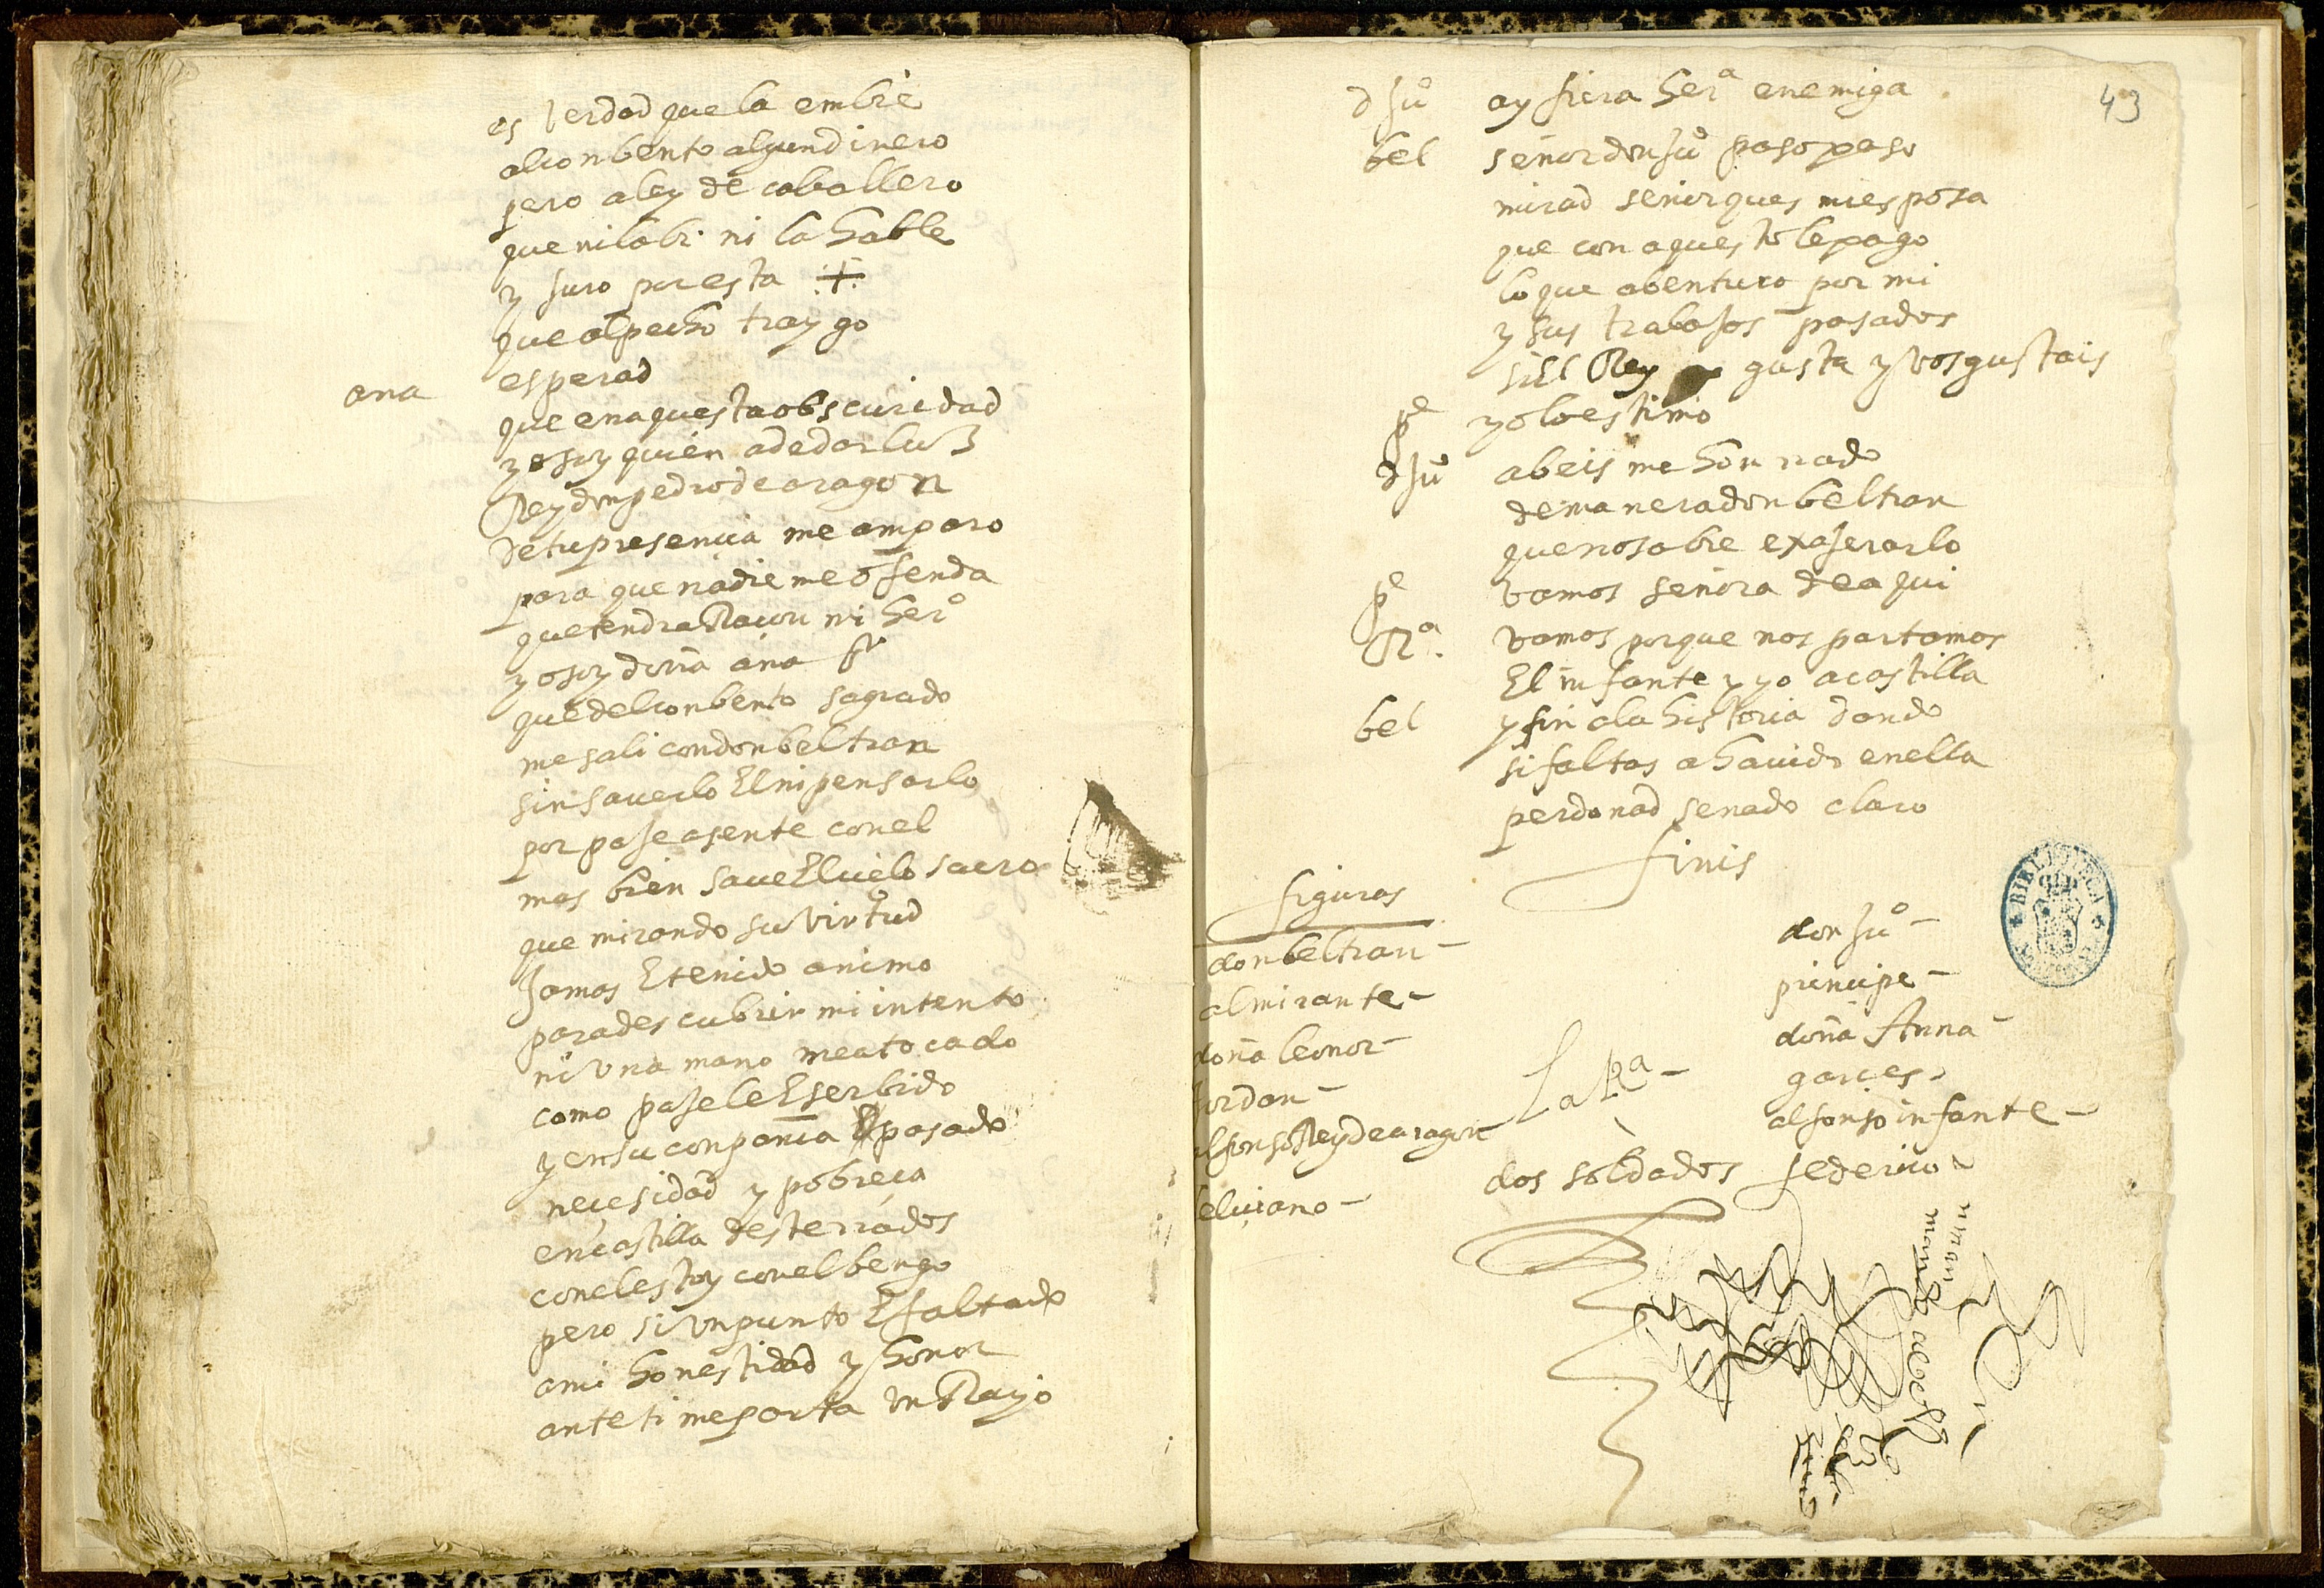 es verdad que la embie
al conbento algun dinero
pero a ley de caballero
que ni la bi ni la hable
y juro por esta +
que al pecho traygo
ana esperad
que en aquesta obscuridad
yo soy quien a de dar luz
Rey don pedro de aragon
de tu presencia me amparo
para que nadie me ofenda
que tendra Raçon mi her.º
yo soy doña ana
que del conbento sagrado
me sali con don beltran
sin saverlo El ni pensarlo
por paje asente con el
mas bien save El cielo sacro
que mirando su virtud
Jamas E tenido animo
para descubrir mi intento
ni una mano me a tocado
como paje le E serbido
y en su conpañia E pasado
neçesidad y pobreça
en castilla desterrados
con el estoy con el bengo
pero si un punto E faltado
a mi honestidad y honor
ante ti me parta un Rayo
43
d Juº ay fiera herª enemiga
bel señor don Juº paso paso
mirad señor ques mi esposa
que con aquesto le pago
lo que abenturo por mi
y sus trabajos pasados
si El Rey gusta y vos gustais
pe yo lo estimo
d Juº abeis me honrrado
de manera don beltran
que no sabre exajerarlo
pe vamos señora de aqui
Rª. vamos porque nos partamos
El infante y yo a castilla
bel y fin a la historia dando
si faltas a havido en ella
perdonad senado claro
finis
figuras
don beltran –
almirante –
doña leonor –
Jordan –
alfonso Rey de aragon
feliçiano –
La Rª –
dos soldados
don Juº –
principe –
doña Anna –
garçes –
alfonso infante –
federico
BIBLIOTECA